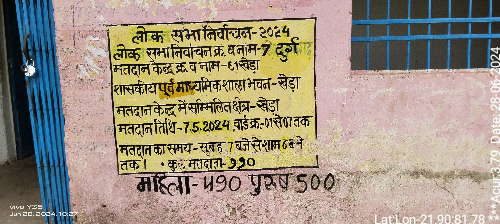 लोक सभा निर्वाचन-2024
लोक सभा निर्वाचन क्र. व नाम-7 दुर्ग
मतदान केन्द्र क्र. व नाम-61 खैड़ा
शासकीय पूर्व माध्यमिक शाला भवन-खैड़ा
मतदान केन्द्र में सम्मिलित क्षेत्र-खैड़ा
मतदान तिथि-7.5.2024, वार्ड क्र.-01 से 07 तक
मतदान का समय-सुबह 7 बजे से शाम 6 बजे
तक। कुल मतदाता-990
महिला-490 पुरुष 500
vivo Y56
Jun 28, 2024, 10:27
Lat Lon-21.90 81.78